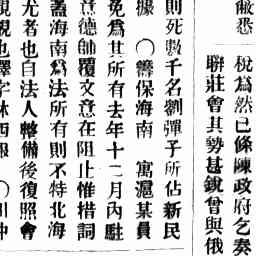 敝悉
稅爲然已條陳政府乞奏
聯莊會其勢甚銳曾與俄
則死數千名劉彈子所佔新民
據　〇籌保海南　寓滬某員
免爲其所有去年十二月內駐
意德帥覆文意在阻止惟措詞
蓋海南爲法所有則不特北海
尤者也自法人整備後復照會
視也譯字林西報　〇川沖